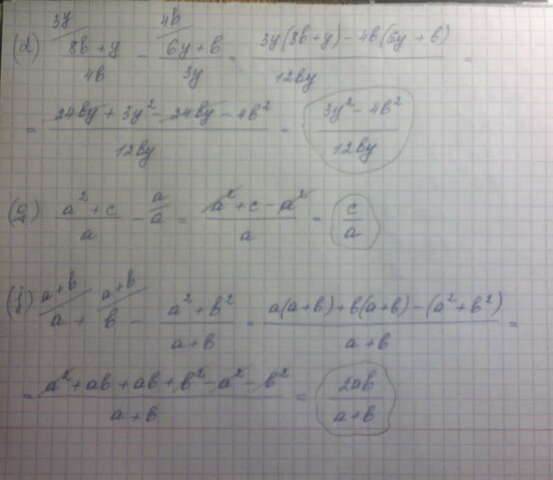 3y 4b
(d) (8b+y)/(4b) - (6y+b)/(3y) = (3y(8b+y) - 4b(6y+b))/(12by) =
= (24by + 3y² - 24by - 4b²)/(12by) = (3y² - 4b²)/(12by)
(g) (a²+c)/a - a/a = (a²+c-a²)/a = c/a
a+b a+b
(j) a + b - (a²+b²)/(a+b) = (a(a+b)+b(a+b)-(a²+b²))/(a+b) =
= (a²+ab+ab+b²-a²-b²)/(a+b) = 2ab/(a+b)